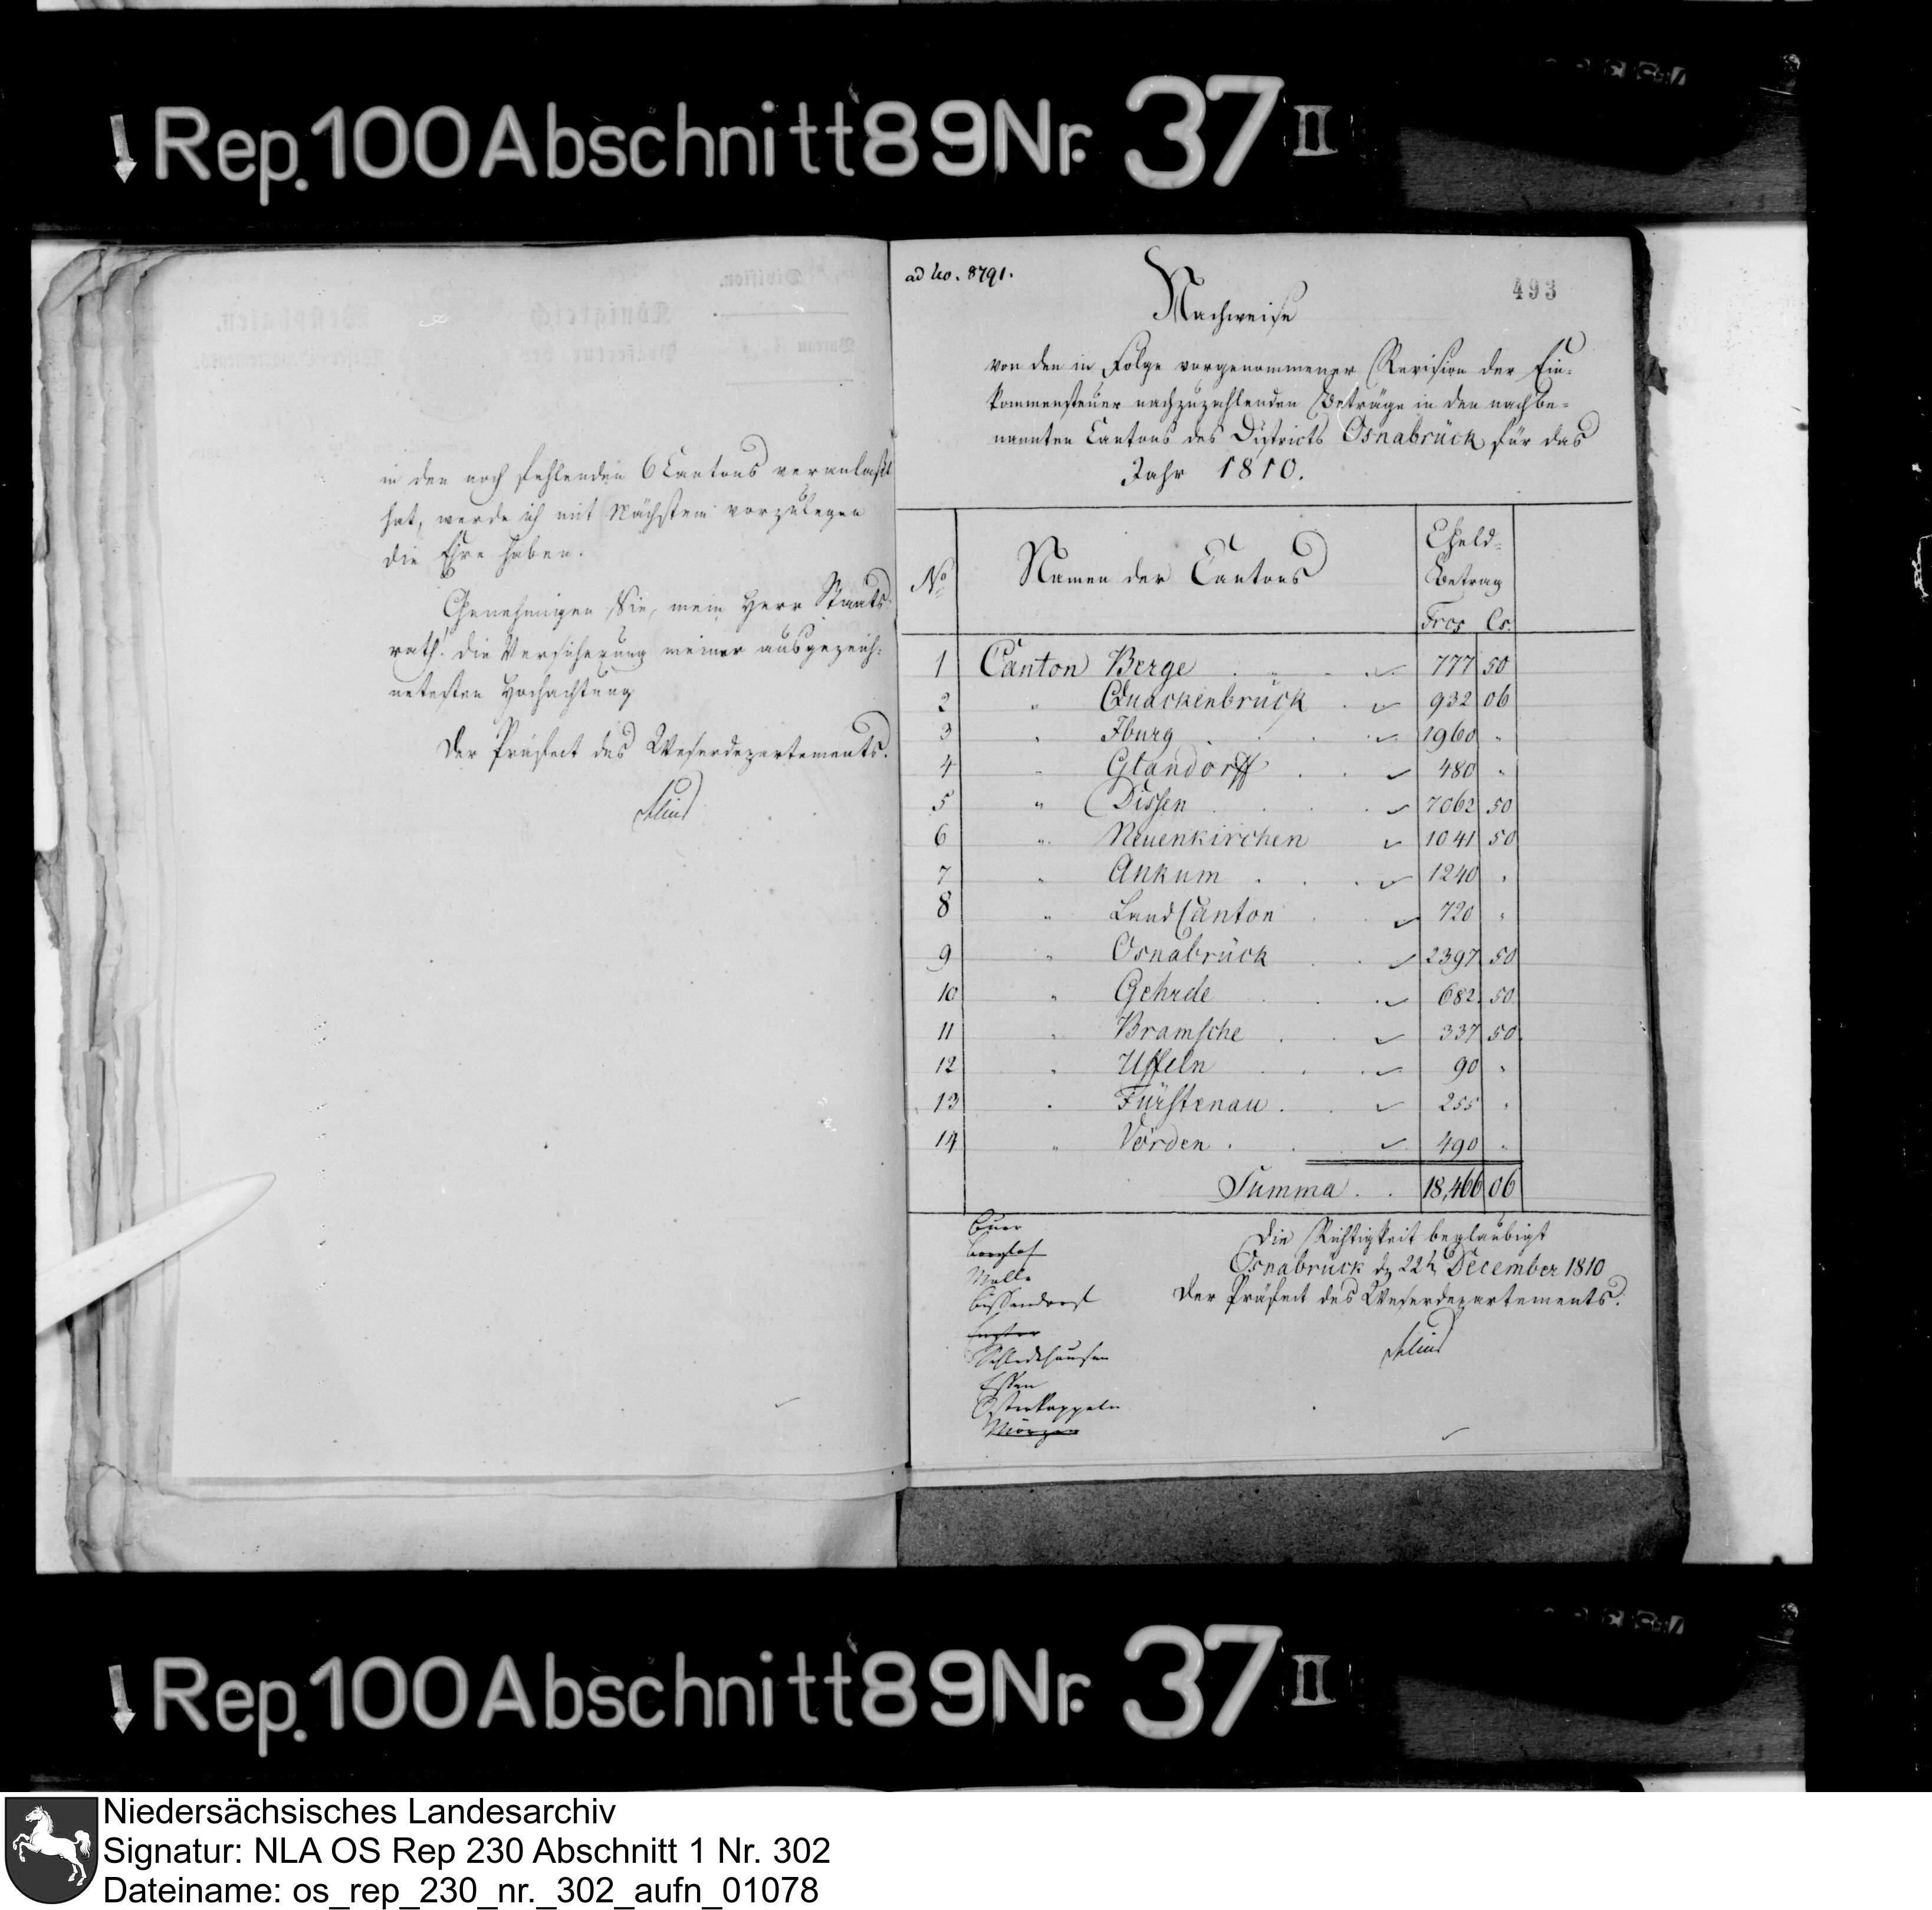 Rep. 100 Abschnitt 89 Nr. 37 II
in den noch fehlenden 6 Cantons veranlaßt
hat, werde ich mit Nächstem vorzulegen
die Ehre haben.
Genehmigen Sie, mein Herr Staats-
rath! die Versicherung meiner ausgezeich-
netesten Hochachtung
Der Präfect des Weserdepartements.
ad No. 8791.
493
Nachweise
von den in Folge vorgenommener Revision der Ein-
kommensteuer nachzuzahlenden Beträge in den nachbe-
nannten Cantons des Districts Osnabrück für das
Jahr 1810.
No Namen der Cantons Geld-
Betrag
Frcs Cs.
1 Canton Berge 777 50
2 " Quackenbrück 932 06
3 " Iburg 1960 "
4 " Glandorff 480 "
5 " Dissen 7062 50
6 " Neuenkirchen 1041 50
7 " Ankum 1240 "
8 " Land Canton 720 "
9 " Osnabrück 2397 50
10 " Gehrde 682 50
11 " Bramsche 337 50
12 " Uffeln 90 "
13 " Fürstenau 255 "
14 " Vörden 490 "
Summa 18,466 06
Die Richtigkeit beglaubigt
Osnabrück d 22t December 1810
Der Präfect des Weserdepartements.
Buer
Borgloh
Melle
Bissendorf
Engter
Schledehausen
Essen
Osterkappeln
Rep. 100 Abschnitt 89 Nr. 37 II
Niedersächsisches Landesarchiv
Signatur: NLA OS Rep 230 Abschnitt 1 Nr. 302
Dateiname: os_rep_230_nr._302_aufn_01078